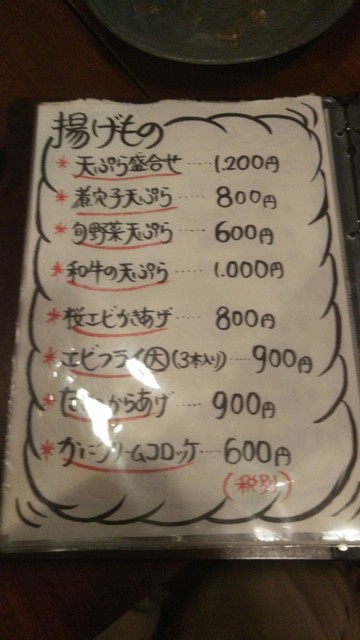 揚げもの
* 天ぷら盛合せ ····· 1.200円
* 煮穴子天ぷら ····· 800円
* 旬野菜天ぷら ····· 600円
* 和牛の天ぷら ····· 1.000円
* 桜エビかきあげ ····· 800円
* エビフライ大(3本入り) ····· 900円
* からあげ ····· 900円
* かにクリームコロッケ ····· 600円
(税別)